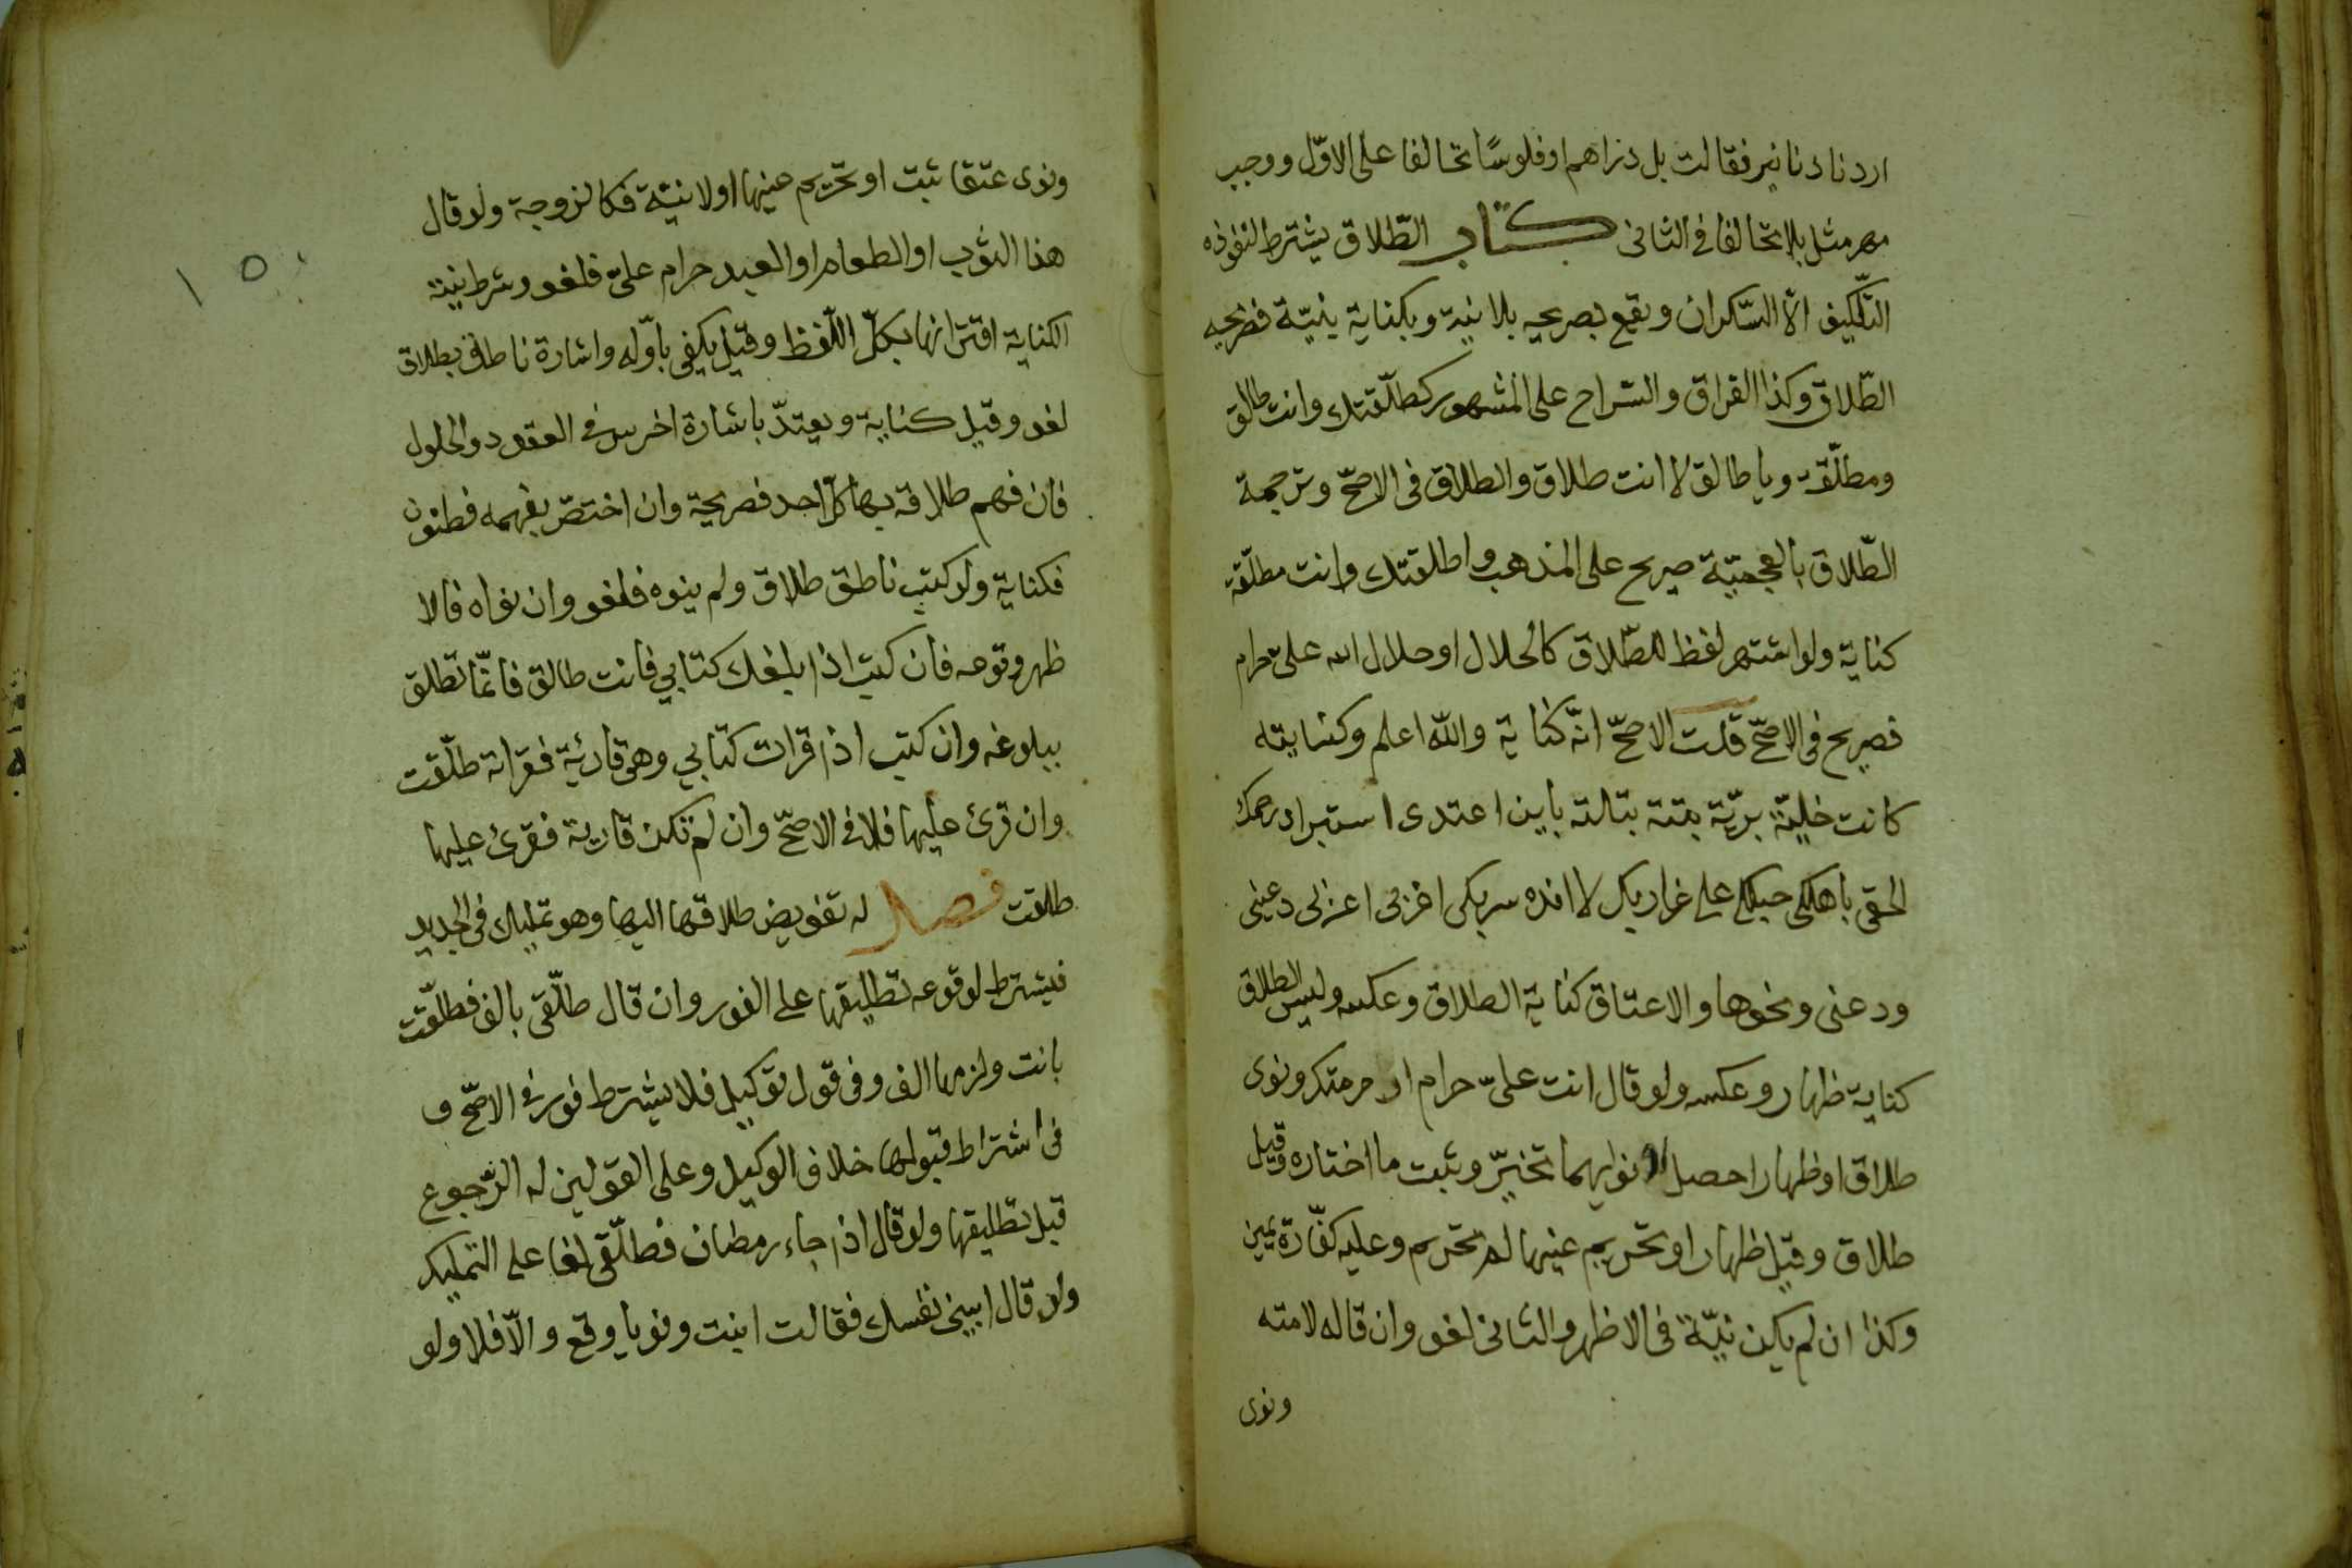 اردنا دنانير فقالت بل دراهم او فلوسًا تحالفا على الاوّل ووجب
مهر مثل بلا تحالف في الثاني كتاب الطّلاق يشترط لنفوذه
التّكليف الّا السّكران ويقع بصريحه بلا نية وبكناية بنيّة فصريحه
الطّلاق وكذا الفراق والسّراح على المشهور كطلّقتك وانت طالق
ومطلّقة ويا طالق لا انت طلاق والطلاق في الاصحّ وترجمة
الطّلاق بالعجميّة صريح على المذهب واطلقتك وانت مطلقة
كناية ولو اشتهر لفظ للطّلاق كالحلال او حلال الله علىّ حرام
فصريح في الاصحّ قلت الاصحّ انّه كناية والله اعلم وكنايته
كانت خليّة بريّة بتة بتلة باين اعتدى استبراء رحمك
الحقى باهلك حبلك على غاربك لا انده سربك اغربى اعزبى دعينى
ودعنى ونحوها والاعتاق كناية الطلاق وعكسه وليس الطلاق
كناية ظهار وعكسه ولو قال انت علىّ حرام او حرمتك ونوى
طلاقا او ظهارا حصل او نواهما تخيّر وثبت ما اختاره وقيل
طلاق وقيل ظهار او تحريم عينها لم تحرم وعليه كفّارة يمين
وكذا ان لم يكن نيّة في الاظهر والثاني لغو وان قاله لامته
ونوى
ونوى عتقا ثبت او تحريم عينها او لا نيّة فكالزوجة ولو قال
هذا الثوب او الطعام او العبد حرام علىّ فلغو وشرط نية
الكناية اقترانها بكلّ اللّفظ وقيل يكفى باوّله واشارة ناطق بطلاق
لغو وقيل كناية ويعتدّ باشارة اخرس في العقود والحلول
فان فهم طلاقه بها كلّ احد فصريحة وان اختصّ بفهمه فطنون
فكناية ولو كتب ناطق طلاق ولم ينوه فلغو وان نواه فالا
ظهر وقوعه فان كتب اذا بلغك كتابي فانت طالق فانّما تطلق
ببلوغه وان كتب اذا قرات كتابي وهى قارئة فقراته طلّقت
وان قرئ عليها فلا في الاصحّ وان لم تكن قارية فقرئ عليها
طلقت فصل له تفويض طلاقها اليها وهو تمليك في الجديد
فيشترط لوقوعه تطليقها على الفور وان قال طلّقى بالف فطلّقت
بانت ولزمها الف وفى قول توكيل فلا يشترط فور في الاصحّ و
فى اشتراط قبولها خلاف الوكيل وعلى القولين له الرّجوع
قبل تطليقها ولو قال اذا جاء رمضان فطلّقى لغا على التمليك
ولو قال ابينى نفسك فقالت ابنت ونويا وقع والّا فلا ولو
١٥٠